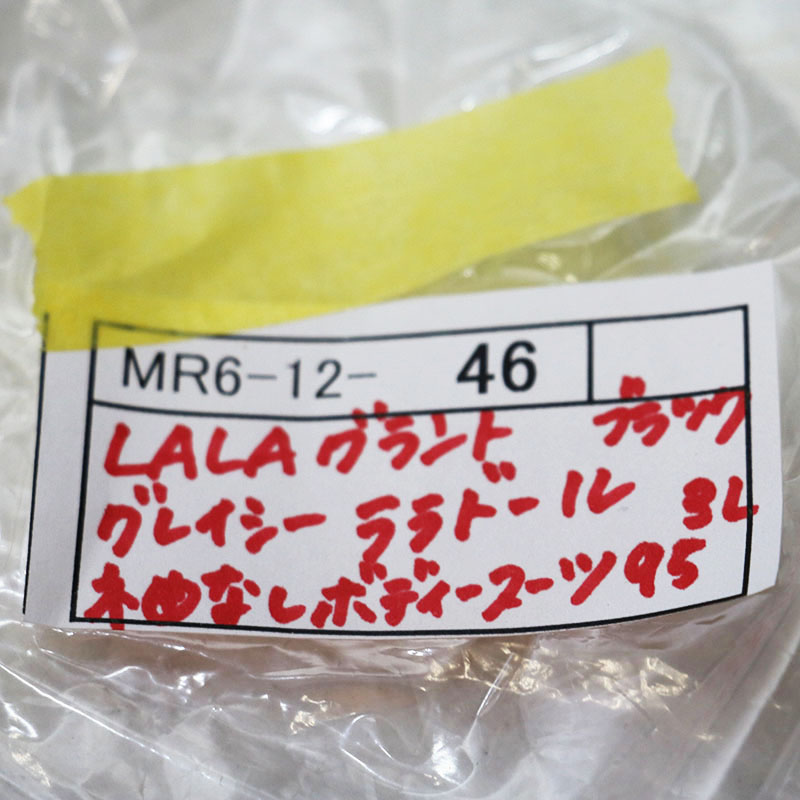 MR6-12- 46
LALA グランド ブラック
グレイシー ララドール 3L
袖なしボディースーツ95